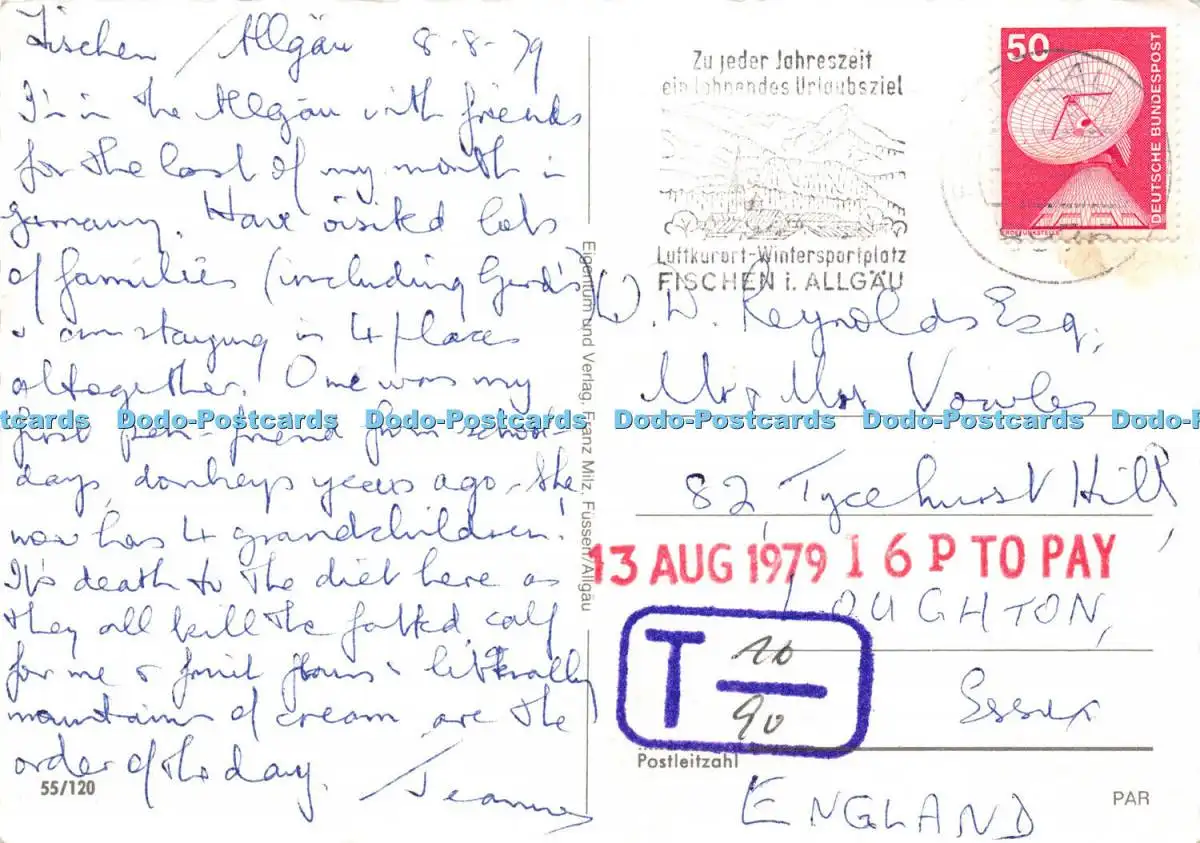 Fischen / Allgäu 8-8-79
I'm in the Allgäu with friends
for the last of my month in
Germany. Have visited lots
of families (including Gerd's)
& am staying in 4 places
altogether. One was my
first pen-friend from school
days, donkeys years ago, she
now has 4 grandchildren!
It's death to the diet here as
they all kill the fatted calf
for me & fruit flans & literally
mountains of cream are the
order of the day.
55/120
Eigentum und Verlag, Franz Milz, Füssen/Allgäu
Zu jeder Jahreszeit
ein lohnendes Urlaubsziel
Luftkurort-Wintersportplatz
FISCHEN i. ALLGÄU
50
DEUTSCHE BUNDESPOST
ERDEFUNKSTELLE
W. W. Reynolds Esq,
Mr & Mrs Vowles
Dodo-Postcards Dodo-Postcards Dodo-Postcards Dodo-Postcards
82, Tycehurst Hill,
13 AUG 1979 16P TO PAY
LOUGHTON,
T 20
90
Essex
Postleitzahl
ENGLAND
PAR